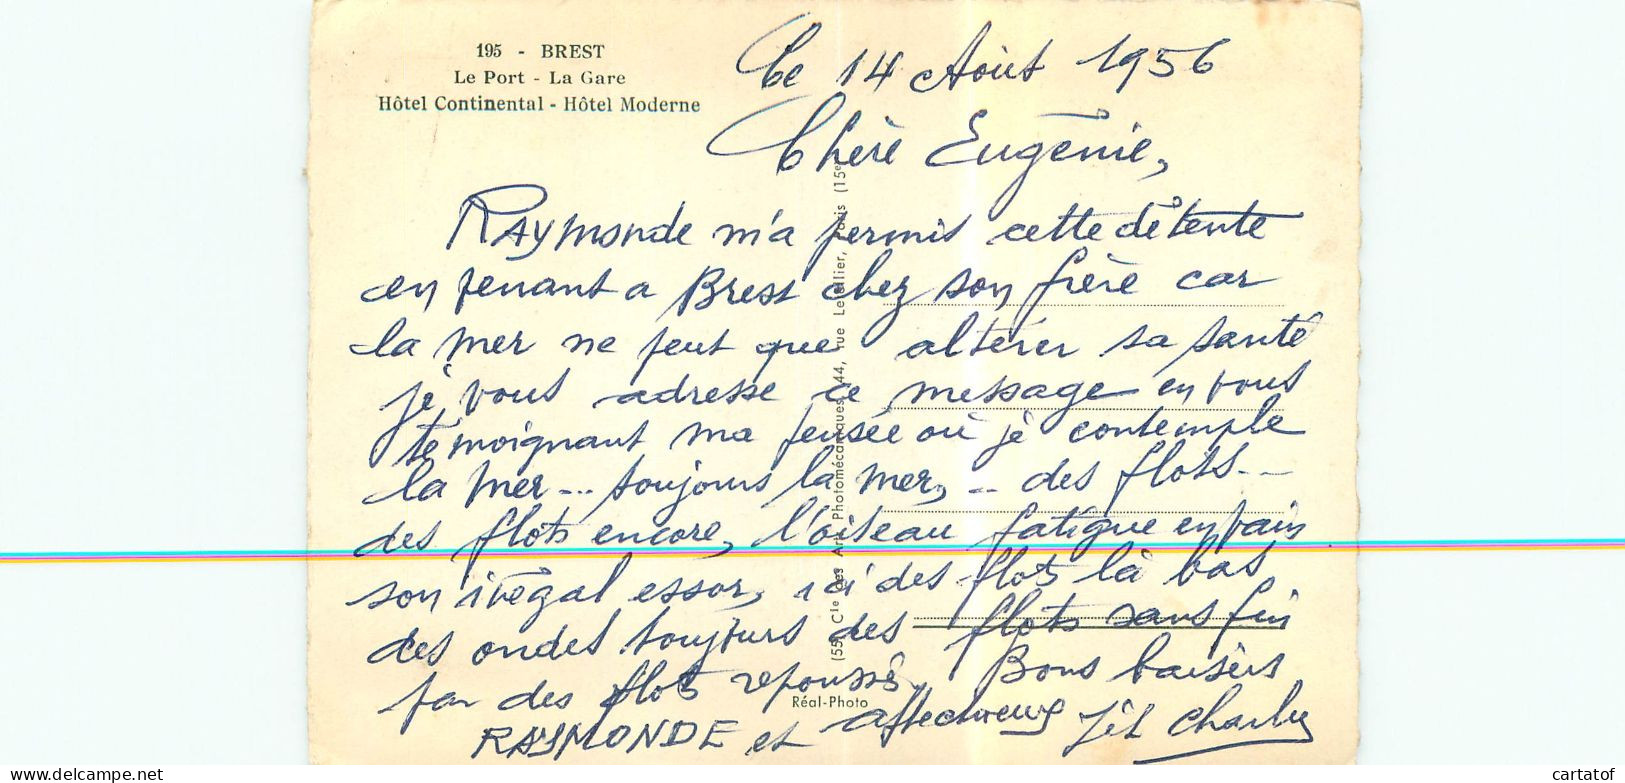 195 - BREST
Le Port - La Gare
Hôtel Continental - Hôtel Moderne
Le 14 Août 1956
Chère Eugénie,
RAYMONDE m'a permis cette détente
en venant a Brest chez son frère car
la mer ne peut que altérer sa santé
je vous adresse ce message en vous
témoignant ma pensée où je contemple
la mer... toujours la mer, .. des flots..
des flots encore, l'oiseau fatigue en vain
son inégal essor, ici des flots là bas
des ondes toujours des flots sans fin
par des flots repoussés. Bons baisers
RAYMONDE et affectueux Charles
(55) Cie des Arts Photomécaniques, 44, rue Letellier, Paris (15e)
Réal-Photo
cartatof.com
cartatof